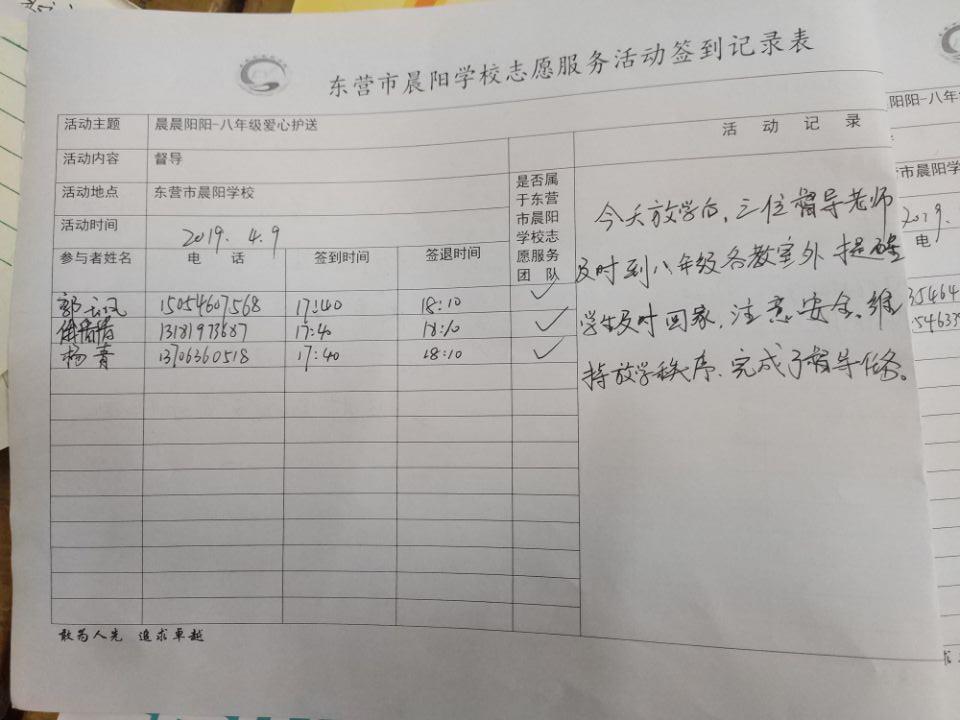 东营市晨阳学校志愿服务活动签到记录表
活动主题 晨晨阳阳-八年级爱心护送
活动内容 督导
活动地点 东营市晨阳学校
活动时间 2019. 4.9
参与者姓名 电 话 签到时间 签退时间
是否属
于东营
市晨阳
学校志
愿服务
团 队
郭 15054607568 17:40 18:10 ✓
13181973687 17:40 18:10 ✓
杨青 13706360518 17:40 18:10 ✓
活 动 记 录
今天放学后,三位督导老师
及时到八年级各教室外提醒
学生及时回家,注意安全、维
持放学秩序、完成了督导任务。
敢为人先 追求卓越
阳阳-八年
市晨阳学
2019.
电
35464